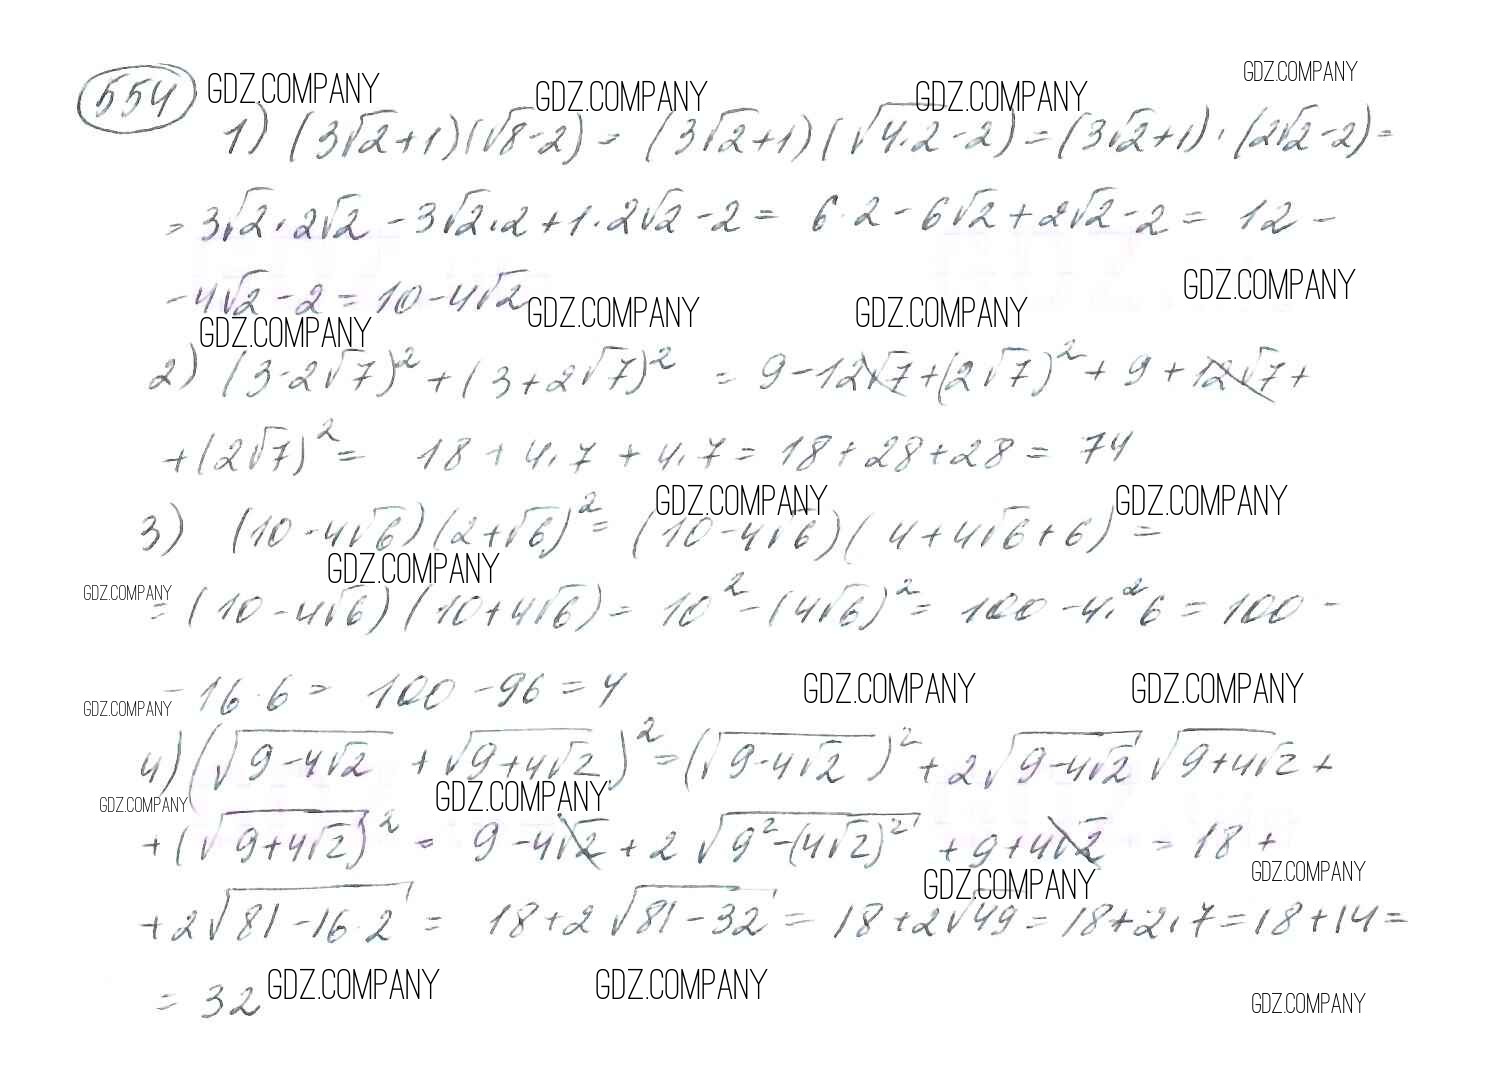 554 GDZ.COMPANY GDZ.COMPANY GDZ.COMPANY GDZ.COMPANY
1) (3√2+1)(√8-2) = (3√2+1)(√4·2-2) = (3√2+1)·(2√2-2) =
= 3√2·2√2 - 3√2·2 + 1·2√2 - 2 = 6·2 - 6√2 + 2√2 - 2 = 12 -
- 4√2 - 2 = 10 - 4√2
GDZ.COMPANY GDZ.COMPANY GDZ.COMPANY GDZ.COMPANY
2) (3-2√7)² + (3+2√7)² = 9 - 12√7 + (2√7)² + 9 + 12√7 +
+ (2√7)² = 18 + 4·7 + 4·7 = 18 + 28 + 28 = 74
GDZ.COMPANY GDZ.COMPANY
3) (10-4√6)(2+√6)² = (10-4√6)(4+4√6+6) =
GDZ.COMPANY GDZ.COMPANY
= (10-4√6)(10+4√6) = 10² - (4√6)² = 100 - 4²·6 = 100 -
- 16·6 = 100 - 96 = 4
GDZ.COMPANY GDZ.COMPANY GDZ.COMPANY
4) (√(9-4√2) + √(9+4√2))² = (√(9-4√2))² + 2√(9-4√2) √(9+4√2) +
GDZ.COMPANY GDZ.COMPANY
+ (√(9+4√2))² = 9 - 4√2 + 2√(9²-(4√2)²) + 9 + 4√2 = 18 +
GDZ.COMPANY GDZ.COMPANY
+ 2√(81-16·2) = 18 + 2√(81-32) = 18 + 2√49 = 18 + 2·7 = 18 + 14 =
= 32 GDZ.COMPANY GDZ.COMPANY GDZ.COMPANY